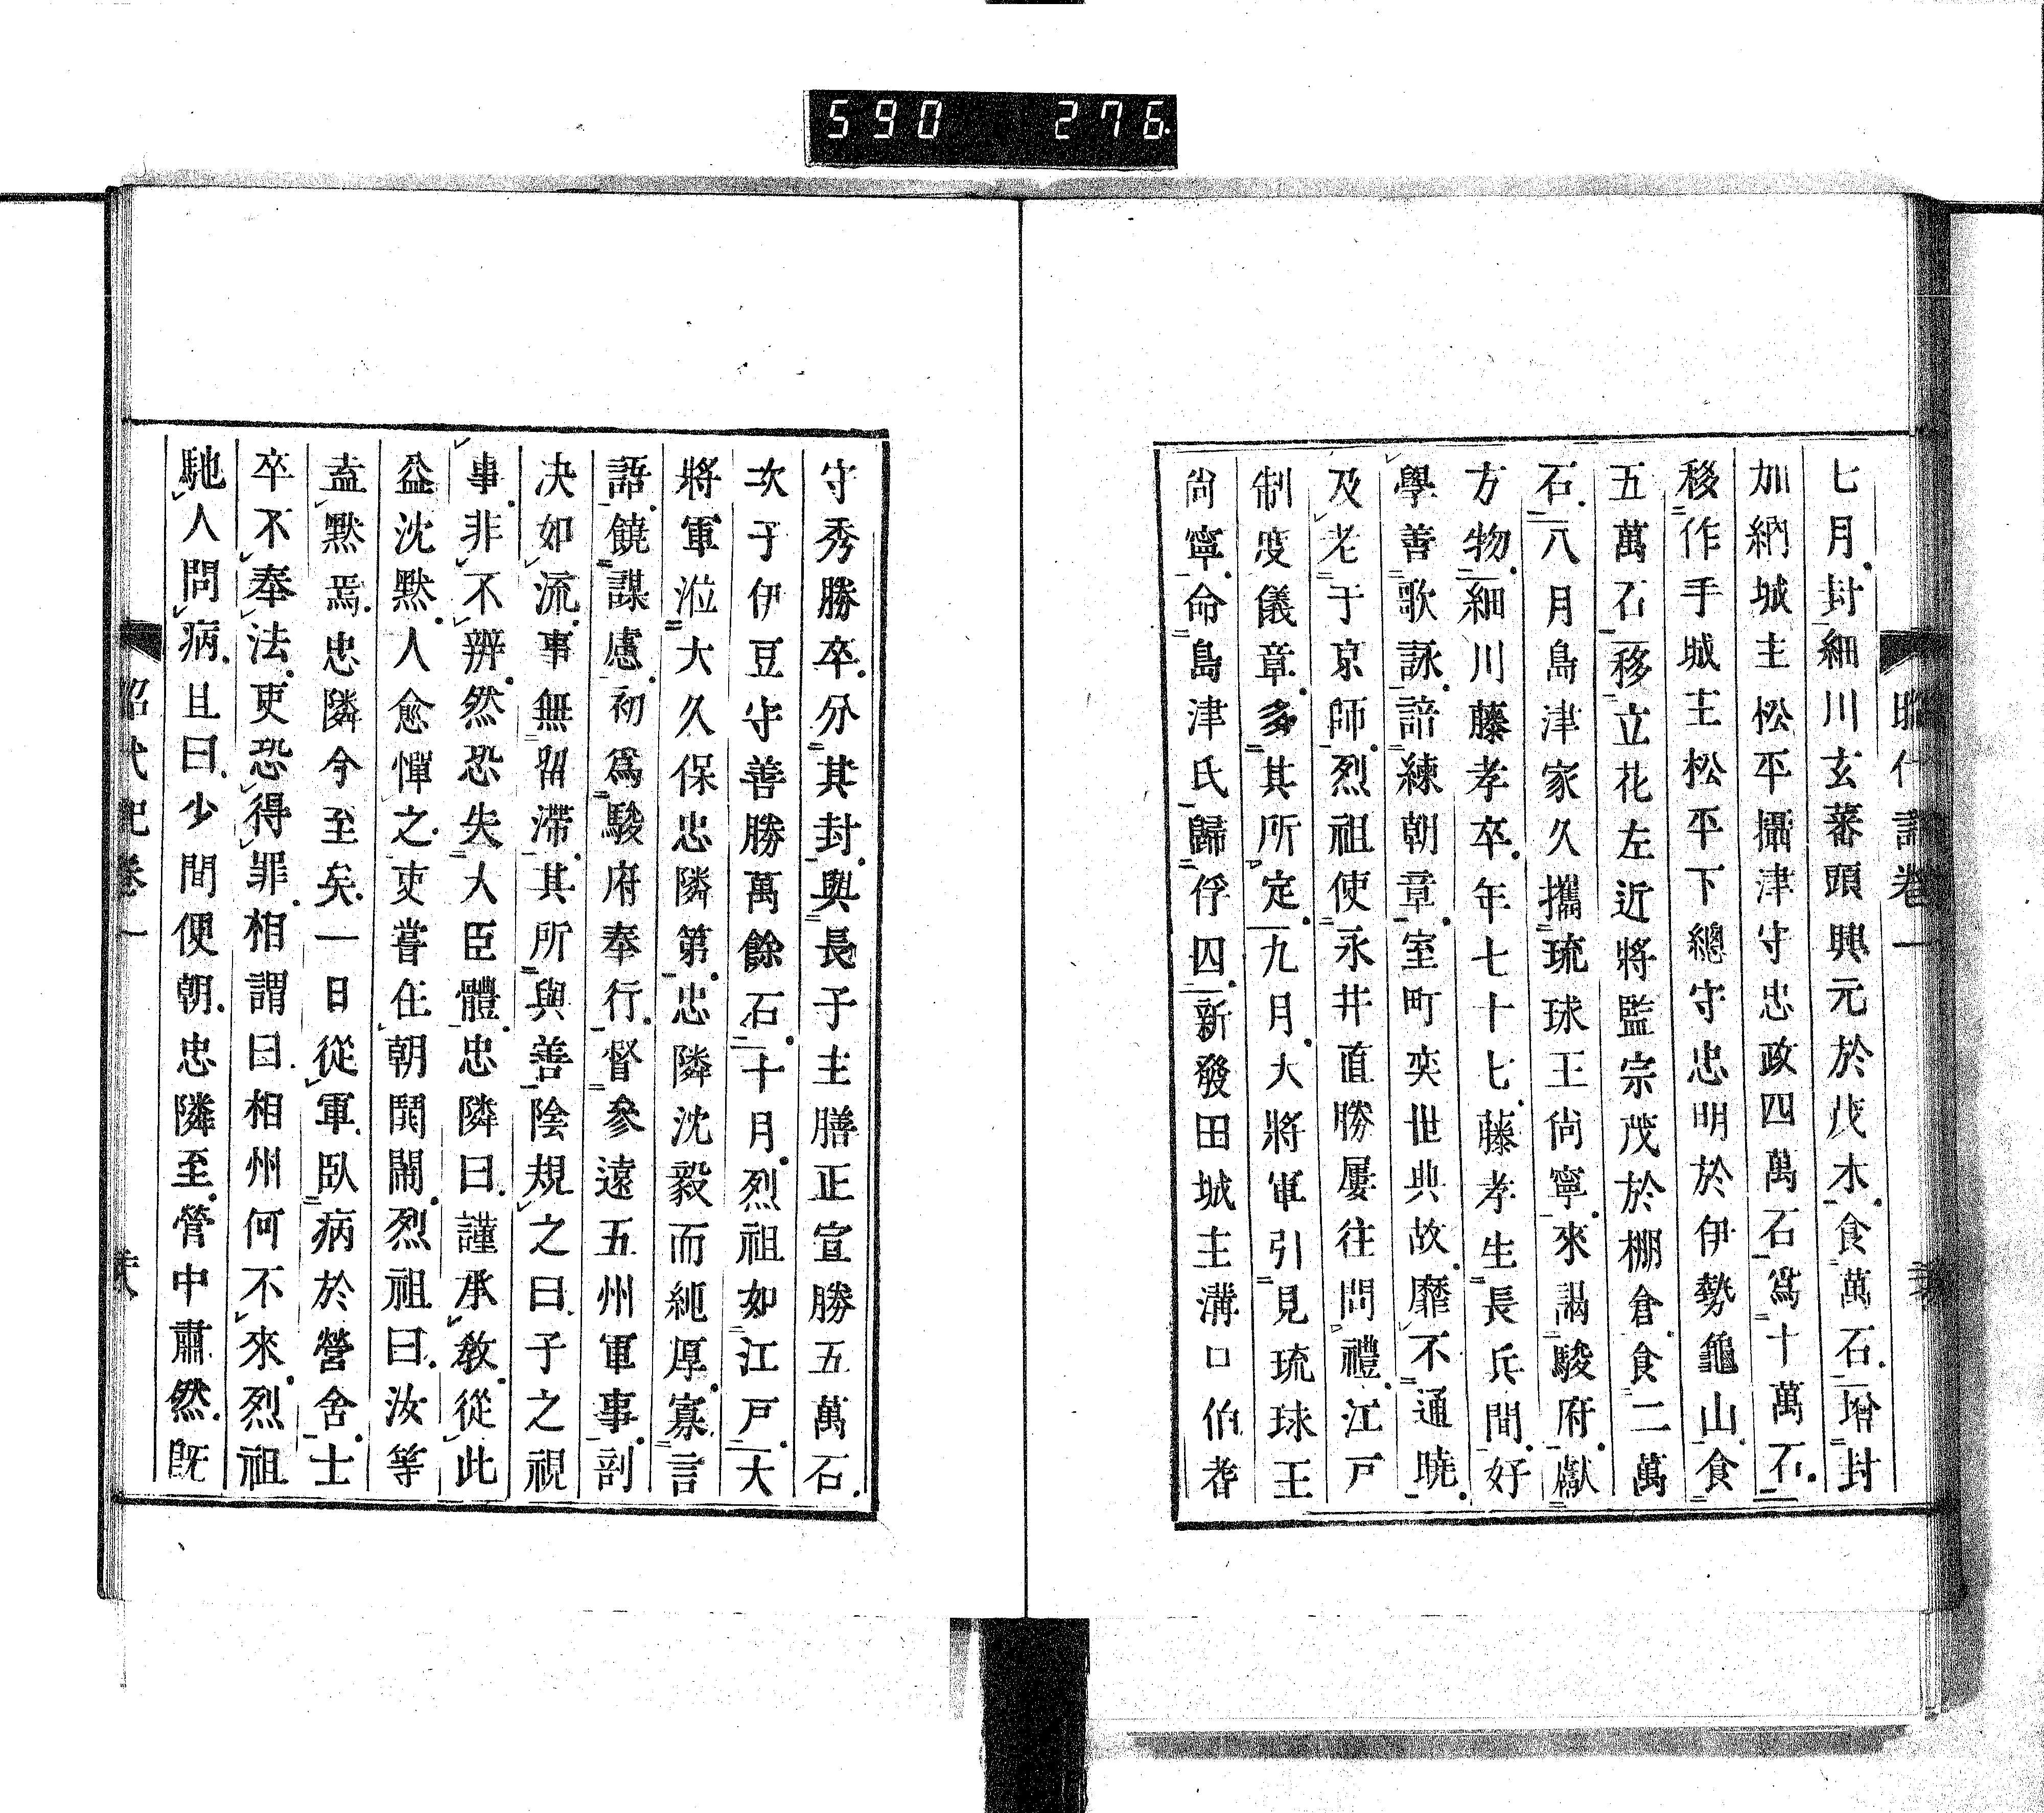 590 276
昭代記卷一
七月封細川玄蕃頭興元於茂木食萬石增封
加納城主松平攝津守忠政四萬石爲十萬石
移作手城主松平下總守忠明於伊勢龜山食
五萬石移立花左近將監宗茂於棚倉食二萬
石八月島津家久攜琉球王尙寧來謁駿府獻
方物細川藤孝卒年七十七藤孝生長兵間好
學善歌詠諳練朝章室町奕世典故靡不通曉
及老于京師烈祖使永井直勝屢往問禮江戸
制度儀章多其所定九月大將軍引見琉球王
尙寧命島津氏歸俘囚新發田城主溝口伯耆
守秀勝卒分其封與長子主膳正宣勝五萬石
次子伊豆守善勝萬餘石十月烈祖如江戸大
將軍涖大久保忠隣第忠隣沈毅而純厚寡言
語饒謀慮初爲駿府奉行督參遠五州軍事剖
决如流事無留滯其所與善陰規之曰子之視
事非不辨然恐失大臣體忠隣曰謹承敎從此
益沈默人愈憚之吏嘗在朝鬨鬧烈祖曰汝等
盍默焉忠隣今至矣一日從軍臥病於營舍士
卒不奉法吏恐得罪相謂曰相州何不來烈祖
馳人問病且曰少間便朝忠隣至營中肅然既
昭代記卷一